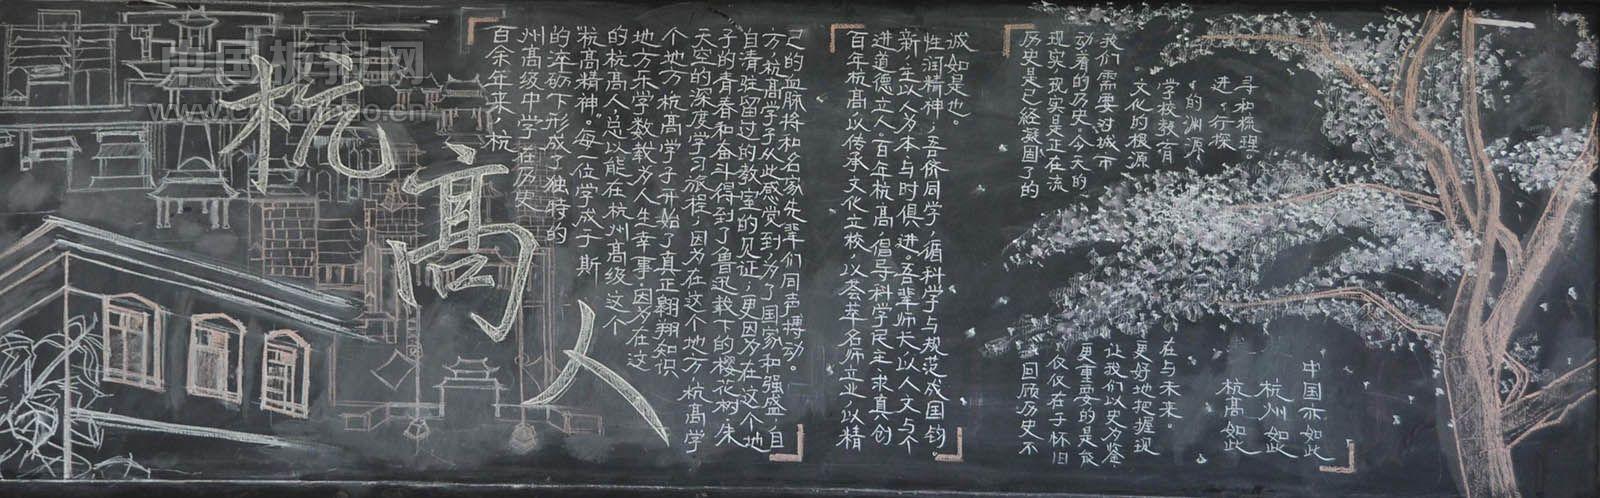 中国板报网
www.cnbanbao.cn
杭高人
百余年来，杭
州高级中学在历史
的淬砺下形成了独特的
杭高精神。每一位学成于斯
的杭高人，总以能在杭州高级这个
地方乐学数载为人生幸事。因为在这
个地方，杭高学子开始了真正翱翔知识
天空的深度学习旅程；因为在这个地方，杭高学
子的青春和奋斗得到了鲁迅栽下的樱花树、朱
自清驻留过的教室的见证；更因为在这个地
方，杭高学子从此感觉到，为了国家和强盛，自
己的血脉将和名家先辈们同声搏动。
百年杭高，以传承文化立校，以荟萃名师立业，以精
进道德立人。百年杭高，倡导科学民主，求真创
新，主以人为本，与时俱进。吾辈师长，以人文与个
性润精神；吾侪同学，循科学与规范成国钧。
诚如是也。
历史是已经凝固了的
现实，现实是正在流
动着的历史。今天的
我们需要对城市
文化的根源
学校教育
的渊源
进行探
寻和梳理。
回顾历史不
仅仅在于怀旧
更重要的是能
让我们以史为鉴
更好地把握现
在与未来。
杭高如此
杭州如此
中国亦如此